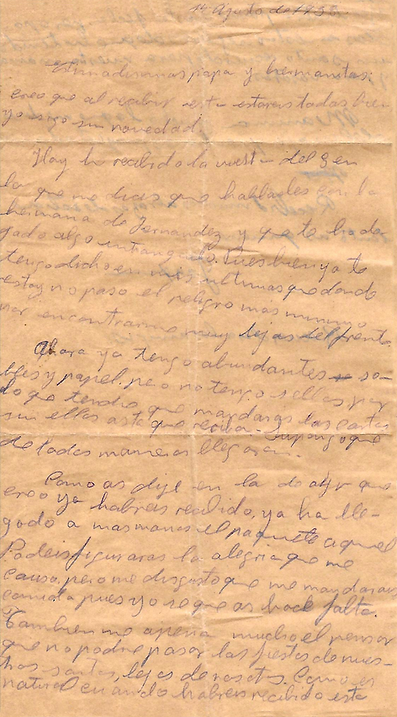 14 Agosto de 1938
papa y hermanitas:
creo que al recibir esta estareis todos bien
yo sigo sin novedad.
Hoy he recibido la vuestra del 9 en
la que me dices que hablasteis con la
hermana de Fernandez y que te ha de
gado algo intranquila. Pues bien ya te
tengo dicho en mis ultimas que donde
estoy no paso el peligro mas minimo
por encontrarme muy lejos del frente.
Ahora ya tengo abundantes so-
bres y papel. pero no tengo sellos por
lo que tendre que mandaros las cartas
sin ellos asta que reciba. Supongo que
de todas maneras llegaran.
Como os dije en la de ayer que
creo ya habreis recibido, ya ha lle-
gado a mis manos el paquete aquel
Podeis figuraros la alegria que me
causo, pero me disgusto que me mandarais
comida pues yo se que os hace falta.
Tambien me apena mucho el pensar
que no podre pasar las fiestas de nues-
tros santos, lejos de vosotros. Como es
natural cuando habreis recibido esta